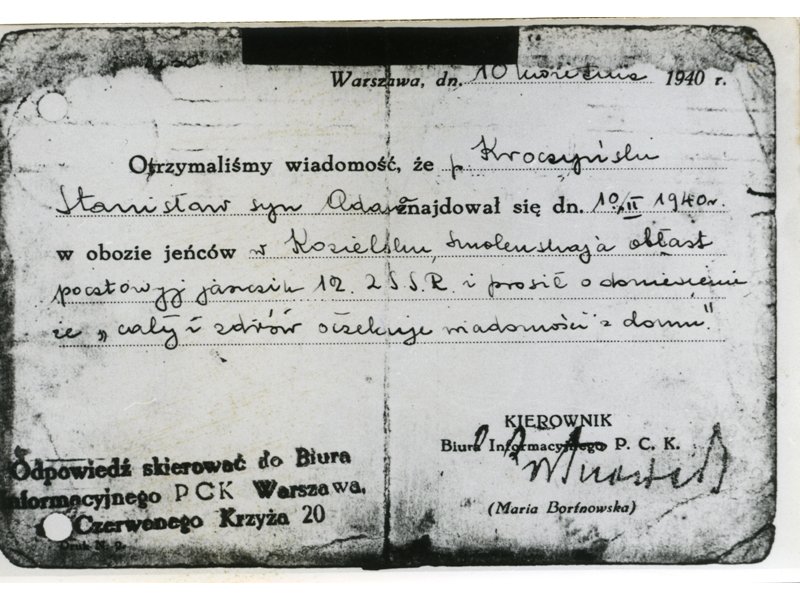 Warszawa, dn. 10 kwietnia 1940 r.
Otrzymaliśmy wiadomość, że p Kroczyński
Stanisław syn Adama znajdował się dn. 10/II 1940 r.
w obozie jeńców w Kozielsku, Smolenskaja obłast
pocztowyj jaszczik 12. ZSSR. i prosił o doniesienie
że „cały i zdrów oczekuje wiadomości z domu".
KIEROWNIK
Biura Informacyjnego P. C. K.
(Maria Bortnowska)
Odpowiedź skierować do Biura
Informacyjnego PCK Warszawa,
Czerwonego Krzyża 20
Druk N. 2.